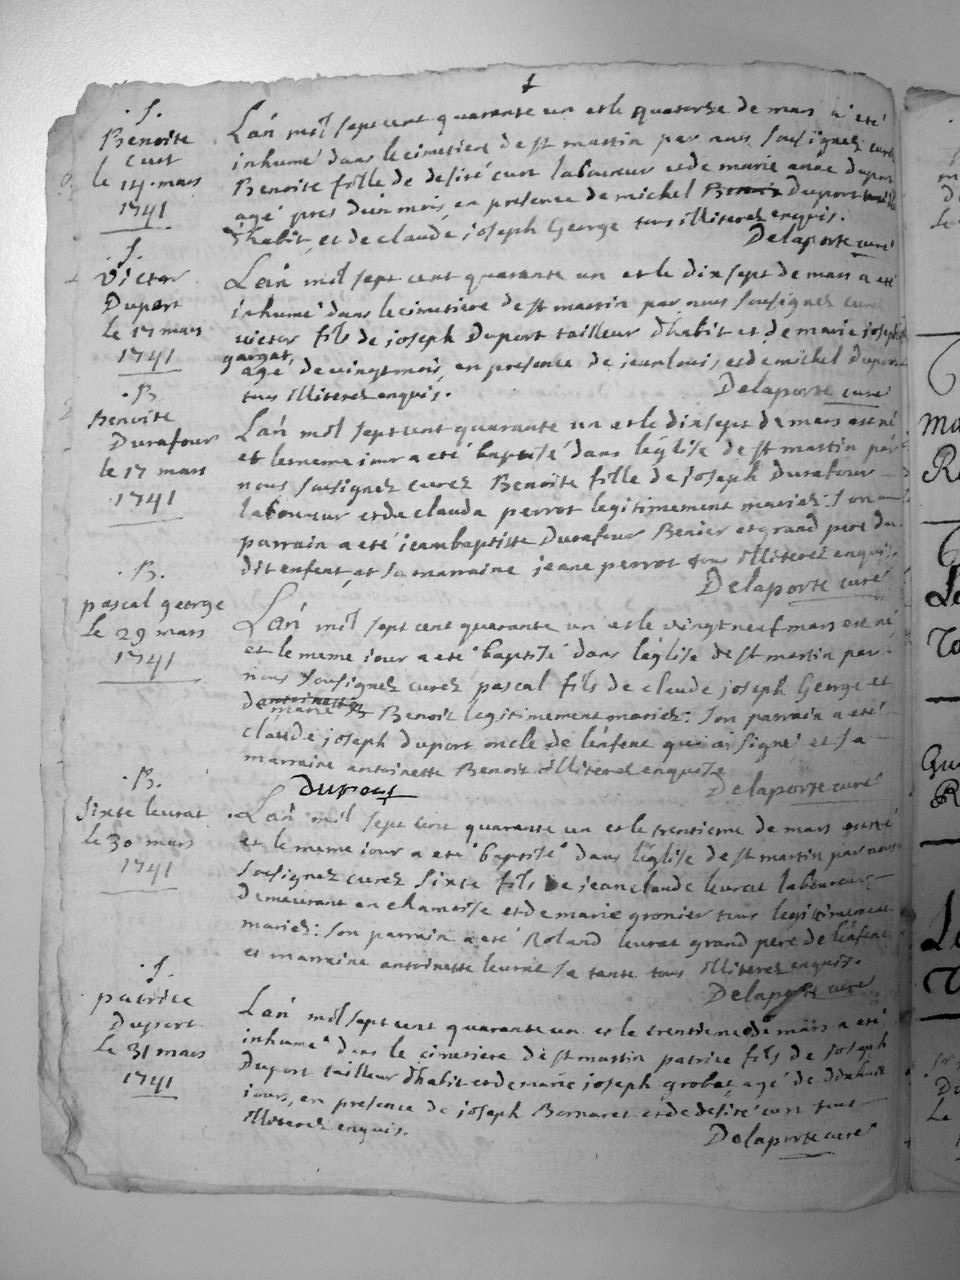 .S.
Benoite
Curt
le 14 mars
1741
L'an mil sept cent quarante un et le quatorze de mars a été
inhumé dans le cimetiere de st martin par nous sousignez curé
Benoite fille de desiré curt laboureur et de marie anne duport
agé pres d'un mois, en presence de michel Duport
d'habit, et de claude joseph George tous illiterez enquis.
Delaporte curé
.S.
Victor
Duport
le 17 mars
1741
L'an mil sept cent quarante un et le dixsept de mars a eté
inhumé dans le cimetiere de st martin par nous sousignez curé
victor fils de joseph Duport tailleur d'habit et de marie joseph
gargat,
agé de vingt mois, en presence de jean louis, et de michel Duport
tous illiterez enquis.
Delaporte curé
.B
Benoite
Durafour
le 17 mars
1741
L'an mil sept cent quarante un et le dixsept de mars est né
et le meme iour a eté baptisé dans l'église de st martin par
nous sousignez curez Benoite fille de joseph Durafour
laboureur et de clauda perrot legitimement mariez: son
parrain a eté jean baptiste Durafour Benier et grand pere du
dit enfent, et sa marraine jeane perrot tous illiterez enquis.
Delaporte curé
.B.
pascal george
le 29 mars
1741
L'an mil sept cent quarante un et le vingt neuf mars est né
et le meme iour a eté baptisé dans l'église de st martin par
nous sousignez curez pascal fils de claude joseph George et
de antoinette
marie B Benoit legitimement mariez: son parrain a eté
claude joseph duport oncle de l'enfent qui a signé et sa
marraine antoinette Benoit illiterez enquise
Duport
Delaporte curé
.B.
Sixte leurat
le 30 mars
1741
L'an mil sept cent quarante un et le trentieme de mars est né
et le meme iour a eté baptisé dans l'église de st martin par nous
sousignez curez Sixte fils de jean claude leurat laboureur
demeurant en chamoise et de marie gronier tous legitimement
mariez: son parrain a eté Roland leurat grand pere de l'enfent
et marraine antoinette leurat sa tante tous illiterez enquis.
Delaporte curé
.S.
patrice
Duport
le 31 mars
1741
L'an mil sept cent quarante un et le trentieme de mars a eté
inhumé dans le cimetiere de st martin patrice fils de joseph
Duport tailleur d'habit et de marie joseph grobat, agé de dixhuit
iours, en presence de joseph Bernaret et de desiré curt tous
illiterez enquis.
Delaporte curé